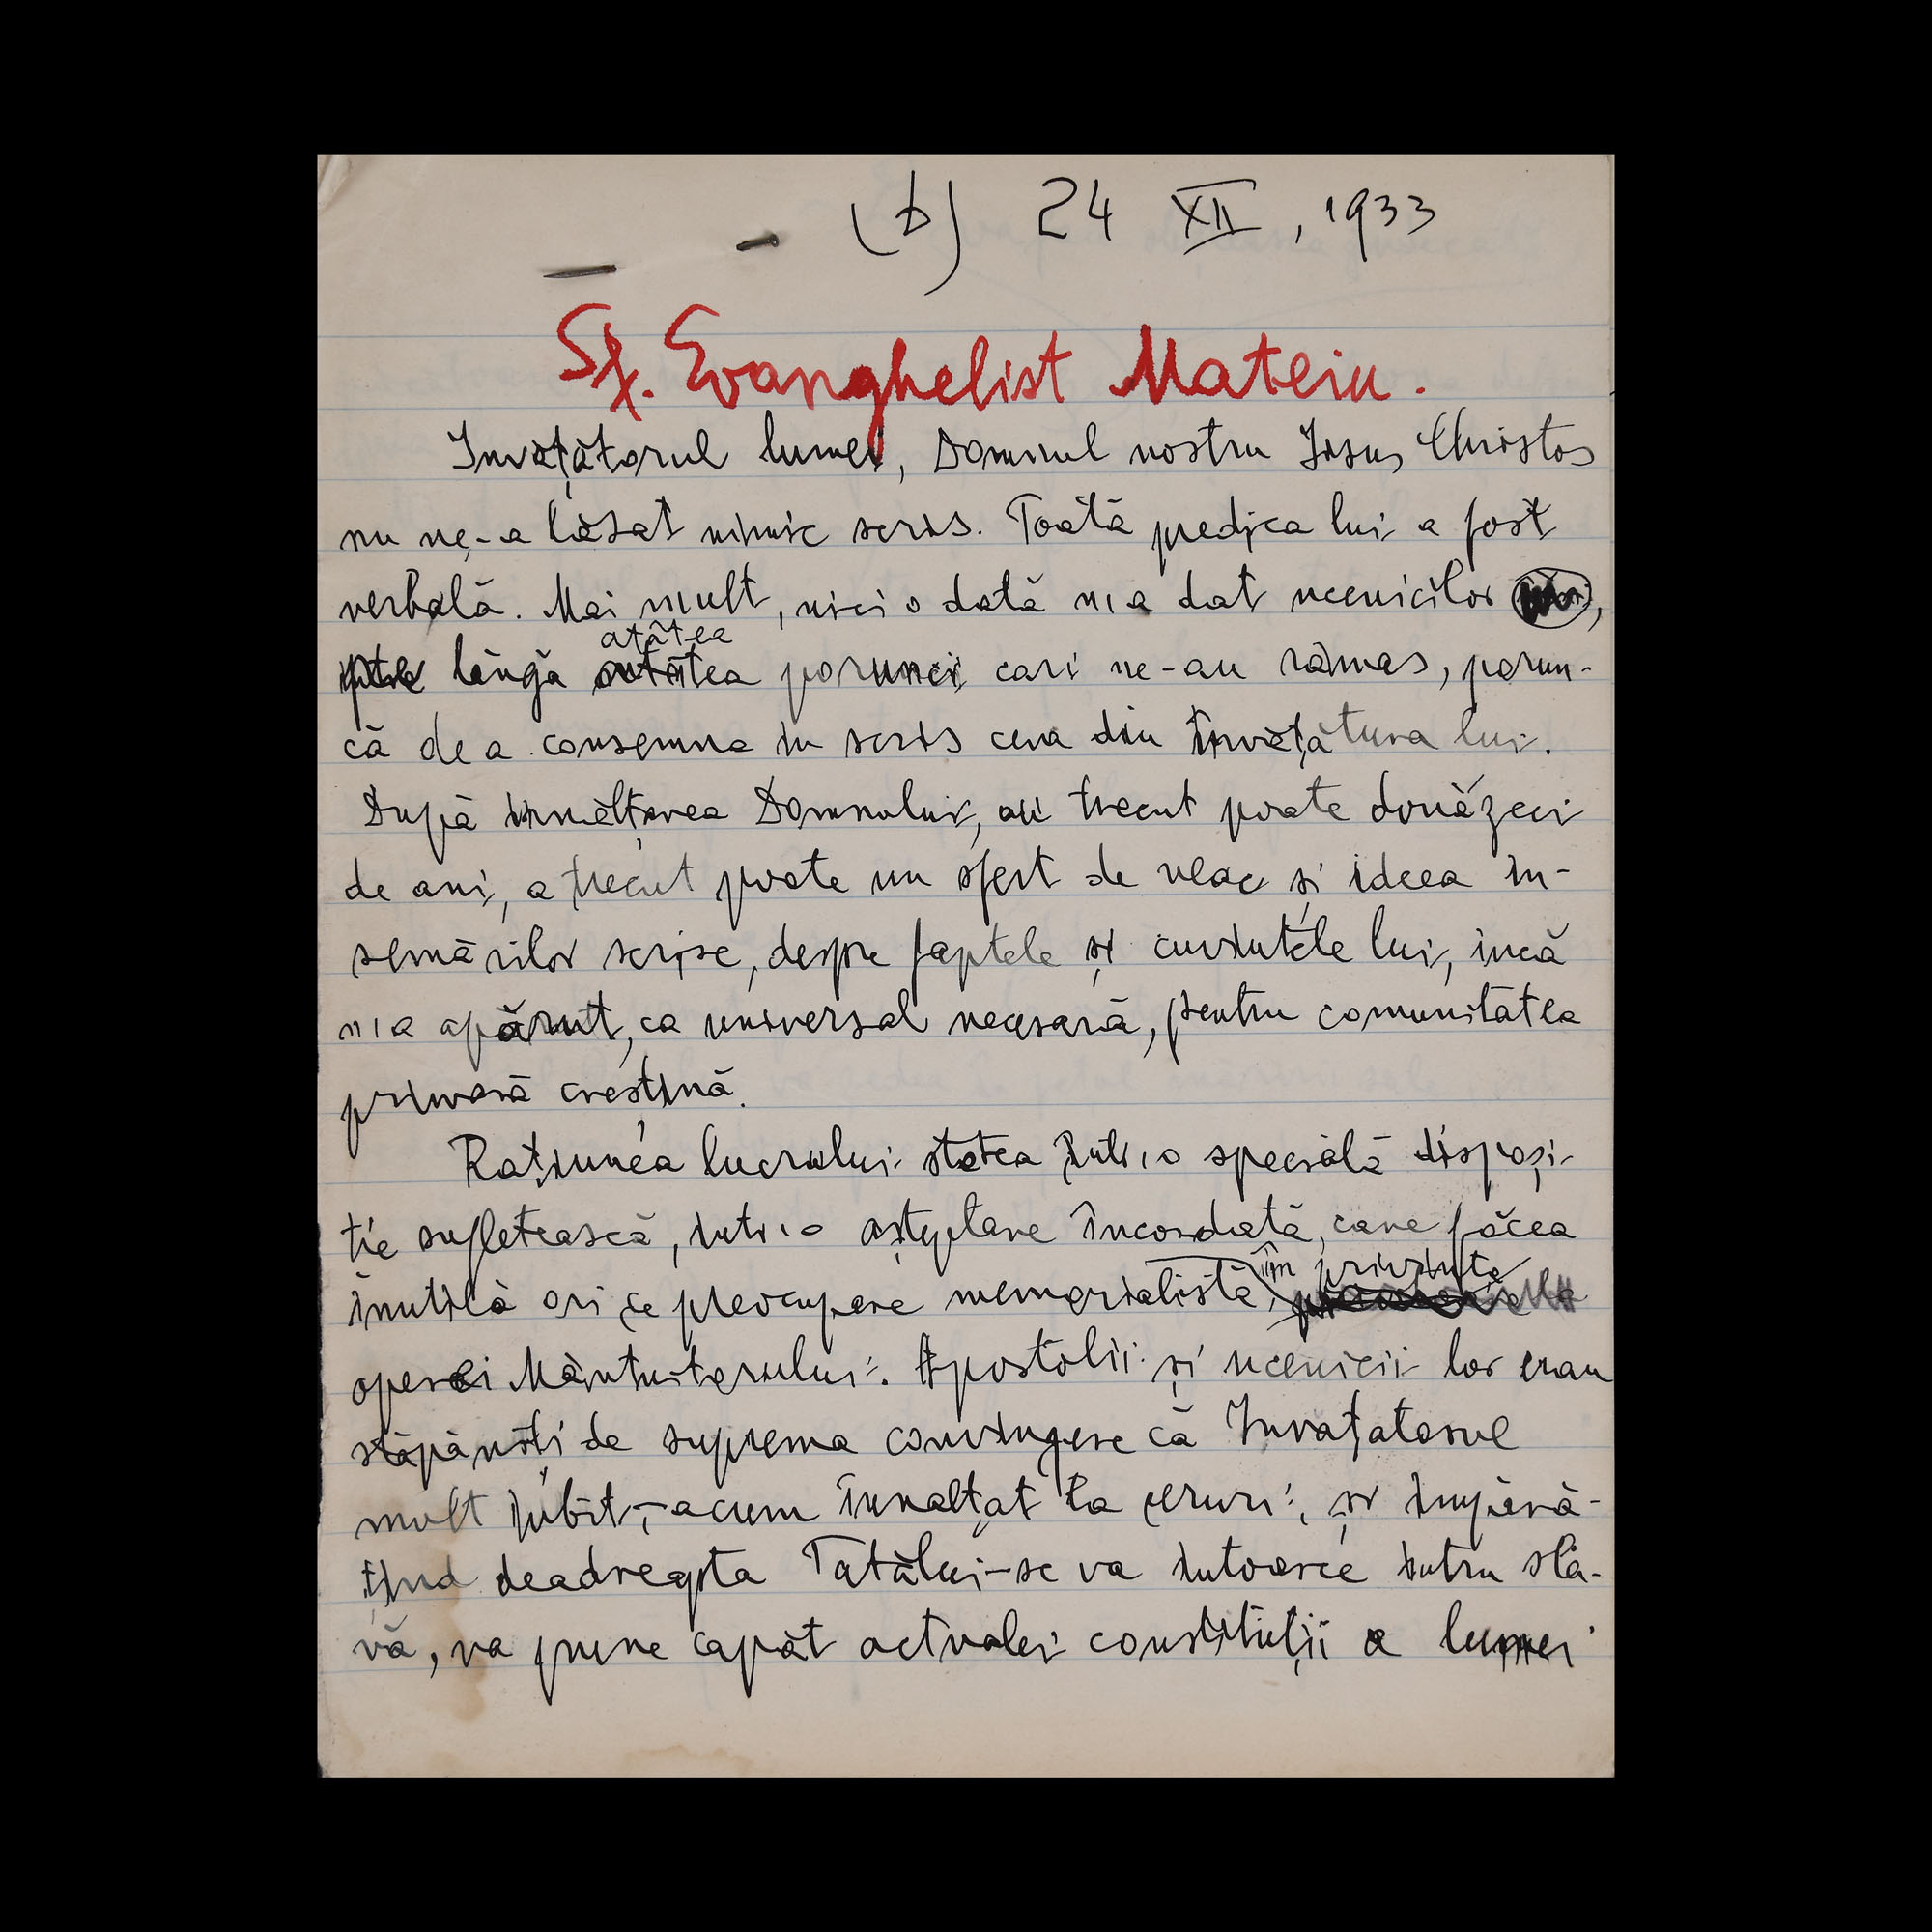 (b) 24 XII, 1933
Sf. Evanghelist Mateiu.
Invățătorul lumei, Domnul nostru Iisus Christos
nu ne-a lăsat nimic scris. Toată predica lui a fost
verbală. Mai mult, nici o dată n'a dat ucenicilor ,
atâtea
lângă porunci cari ne-au rămas, porun-
că de a consemna în scris ceva din învățătura lui.
După înnălțarea Domnului, au trecut poate douăzeci
de ani, a trecut poate un sfert de veac și ideea în-
semărilor scrise, despre faptele și cuvintele lui, încă
n'a apărut, ca universal necesară, pentru comunitatea
primară creștină.
Rațiunea lucrului statea într'o specială dispozi-
ție sufletească, într'o așteptare încordată, care făcea
în privința
inutilă ori ce preocupare memorialistă,
operei Mântuitorului. Apostolii și ucenicii lor erau
stăpâniți de suprema convingere că Invățatorul
mult iubit,-acum înnalțat la ceruri, și împără-
țind deadreapta Tatălui-se va întoarce întru sla-
vă, va pune capăt actualei constituții a lumei